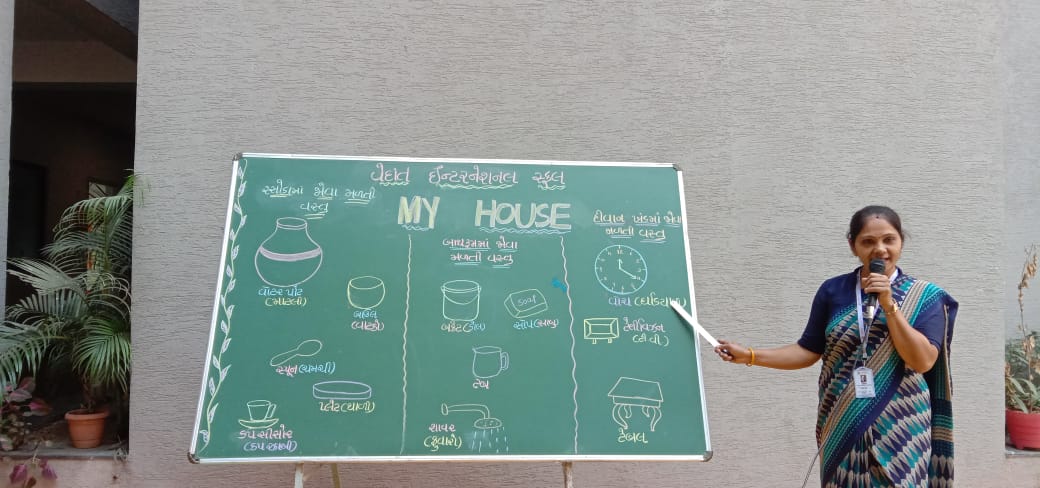 વેદાંત ઈન્ટરનેશનલ સ્કુલ
MY HOUSE
રસોડામાં જોવા મળતી
વસ્તુ
વોટર પોટ
(માટલો)
બાઉલ
(વાટકો)
સ્પૂન(ચમચી)
પ્લેટ(થાળી)
કપ સોસોર
(કપ રકાબી)
બાથરૂમમાં જોવા
મળતી વસ્તુ
બકેટ(ડોલ)
soap
સોપ(સાબુ)
ટબ
શાવર
(ફુવારો)
દીવાન ખંડમાં જોવા
મળતી વસ્તુ
વોચ (ઘડિયાળ)
ટેલીવિઝન
(ટીવી)
ટેબલ